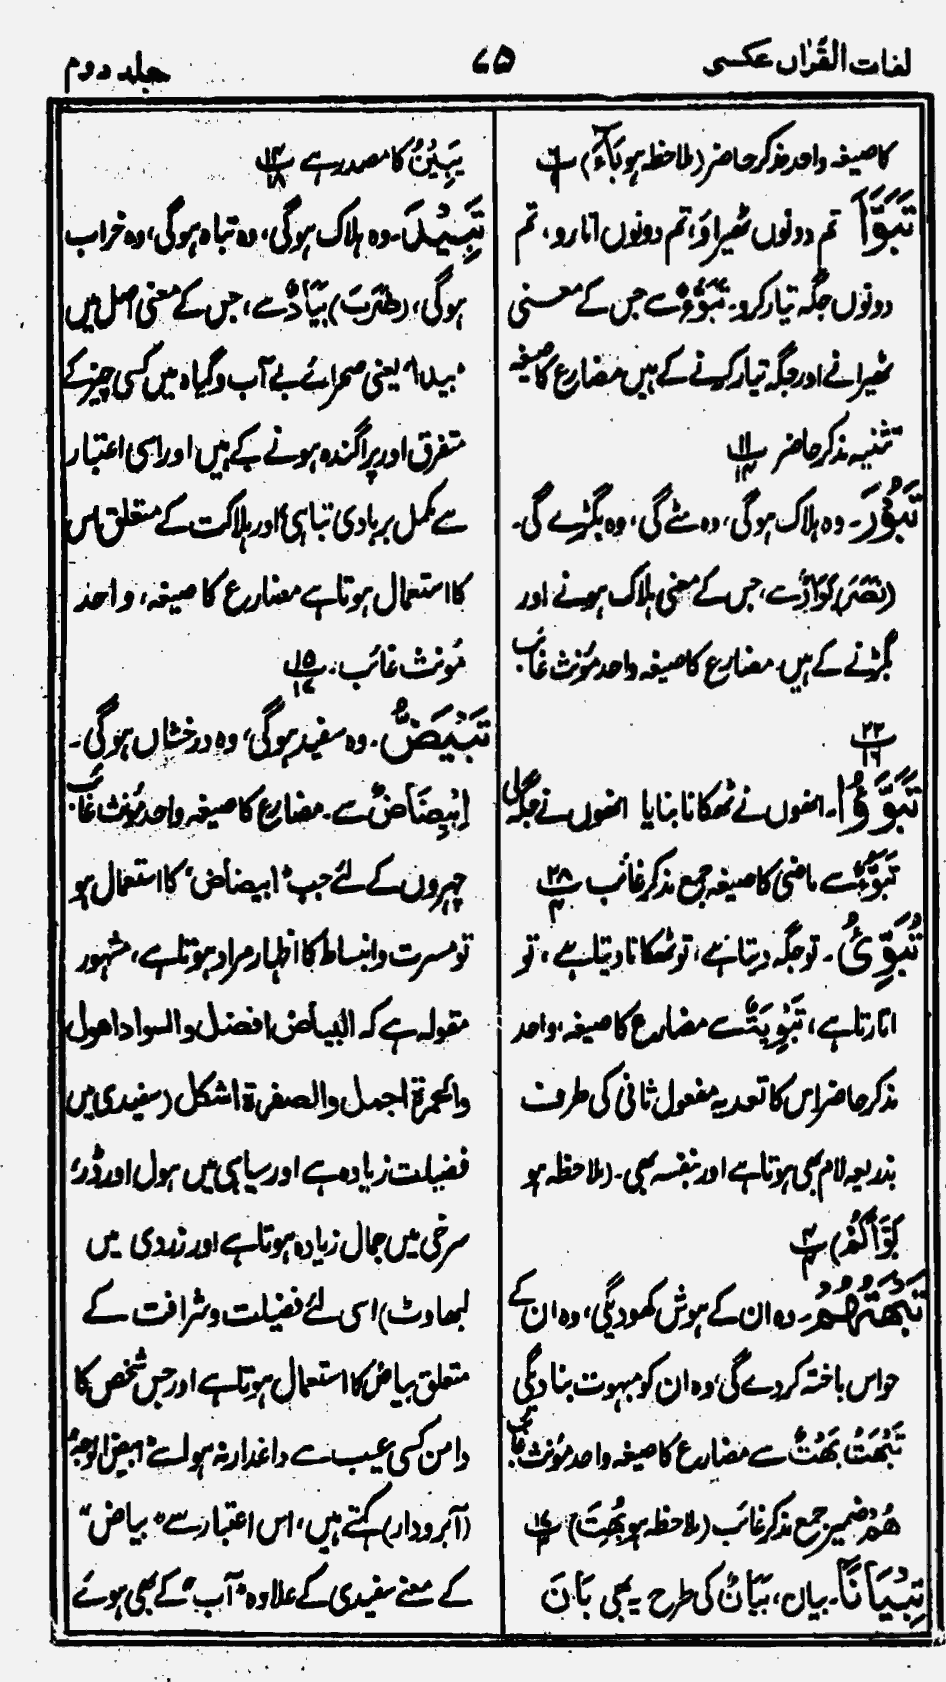 لغات القرآن عکسی
۷۵
جلد دوم
کا صیغہ واحد مذکر حاضر (ملاحظہ ہو بَاءَ) پ
تَبَوَّاٰ تم دونوں ٹھیراؤ، تم دونوں اتارو، تم
دونوں جگہ تیار کرو۔ تَبَوُّءٌ سے جس کے معنی
ٹھیرانے اور جگہ تیار کرنے کے ہیں مضارع کا صیغہ
تثنیہ مذکر حاضر پ ۱۱/۱۴
تَبُوْرَ۔ وہ ہلاک ہوگی، وہ مٹے گی، وہ بگڑے گی۔
(نَصَرَ) بَوَارٌ سے، جس کے معنی ہلاک ہونے اور
بگڑنے کے ہیں۔ مضارع کا صیغہ واحد مؤنث غائب
پ ۲۲/۱۶
تَبَوَّؤُا۔ انھوں نے ٹھکانا بنایا انھوں نے جگہ لی
تَبَوُّءٌ سے ماضی کا صیغہ جمع مذکر غائب پ ۲۸/۴
تُبَوِّئُ۔ تو جگہ دیتا ہے، تو ٹھکانا دیتا ہے، تو
اتارتا ہے، تَبْوِیَۃٌ سے مضارع کا صیغہ، واحد
مذکر حاضر اِس کا تعدیہ مفعول ثانی کی طرف
بذریعہ لام بھی ہوتا ہے اور بنفسہ بھی۔ (ملاحظہ ہو
بَوَّاَکُمْ) پ ۴/۴
تَبْہَتُہُمْ۔ وہ ان کے ہوش کھو دیگی، وہ ان کے
حواس باختہ کر دے گی، وہ ان کو مبہوت بنا دیگی
تَبْہَتُ بَہْتٌ سے مضارع کا صیغہ واحد مؤنث غائب
ہُمْ ضمیر جمع مذکر غائب (ملاحظہ ہو بُہِتَ) پ ۱۷
تِبْیَانًا۔ بیان، تِبْیَانٌ کی طرح یہ بھی بَانَ
یَبِیْنُ کا مصدر ہے پ ۱۴/۱۸
تَبِیْدَ۔ وہ ہلاک ہوگی، وہ تباہ ہوگی، وہ خراب
ہوگی، (ضَرَبَ) بَیَادٌ سے، جس کے معنی اصل میں
بیداء یعنی صحرائے بے آب و گیاہ میں کسی چیز کے
متفرق اور پراگندہ ہونے کے ہیں اور اسی اعتبار
سے مکمل بربادی تباہی اور ہلاکت کے متعلق اس
کا استعمال ہوتا ہے مضارع کا صیغہ، واحد
مؤنث غائب۔ پ ۱۵/۱۷
تَبْیَضُّ۔ وہ سفید ہوگی، وہ درخشاں ہوگی۔
اِبْیِضَاضٌ سے۔ مضارع کا صیغہ واحد مؤنث غائب
چہروں کے لئے جب "ابیضاض" کا استعمال ہو
تو مسرت و انبساط کا اظہار مراد ہوتا ہے، مشہور
مقولہ ہے کہ البیاض افضل والسواد اھول
والحمرۃ اجمل والصفرۃ اشکل (سفیدی میں
فضیلت زیادہ ہے اور سیاہی میں ہول اور ڈر،
سرخی میں جمال زیادہ ہوتا ہے اور زردی میں
لبھاوٹ) اسی لئے فضیلت و شرافت کے
متعلق بیاض کا استعمال ہوتا ہے اور جس شخص کا
دامن کسی عیب سے داغدار نہ ہو اسے "ابیض الوجہ"
(آبرودار) کہتے ہیں، اس اعتبار سے "بیاض"
کے معنے سفیدی کے علاوہ "آب" کے بھی ہوئے